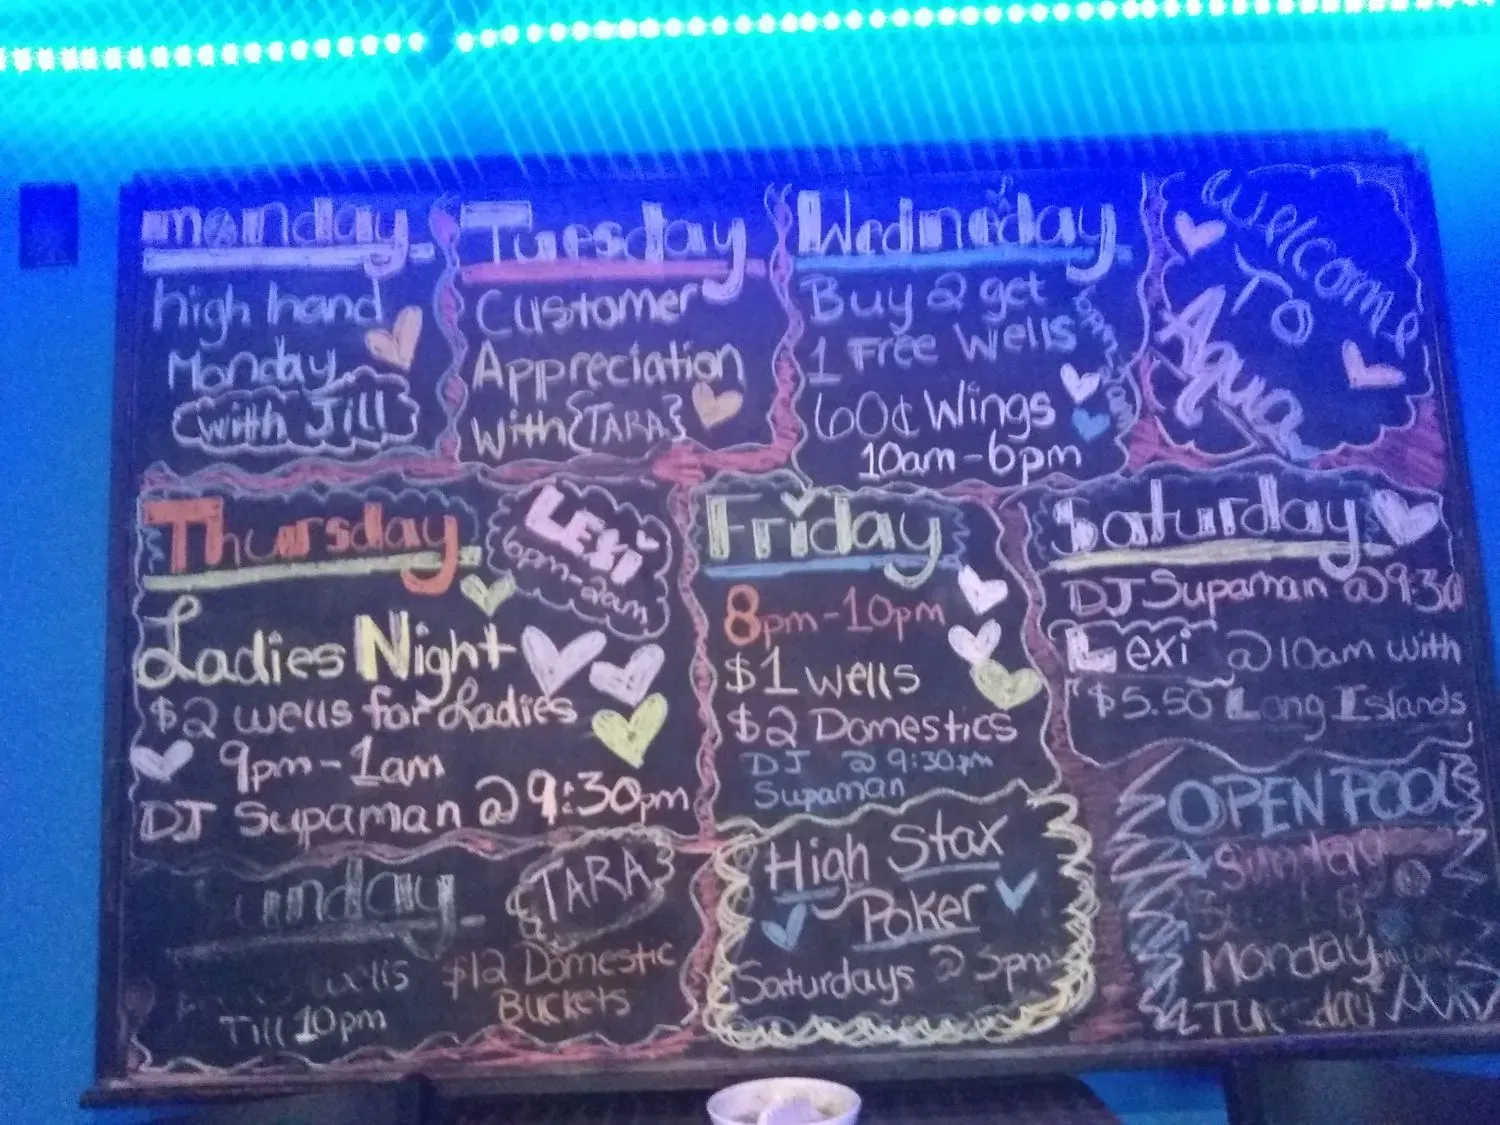 Monday
high hand
Monday
with Jill
Tuesday
Customer
Appreciation
with {TARA}
Wednesday
Buy 2 get
1 Free Wells
60¢ Wings
10am-6pm
Welcome
To
Aqua
Thursday
LEXI
6pm-2am
Ladies Night
$2 wells for Ladies
9pm-1am
DJ Supaman @ 9:30pm
Friday
8pm-10pm
$1 wells
$2 Domestics
DJ @ 9:30pm
Supaman
Saturday
DJ Supaman @ 9:30
Lexi @ 10am with
$5.50 Long Islands
Sunday
TARA
wells
Till 10pm
$12 Domestic
Buckets
High Stax
Poker
Saturdays @ 3pm
OPEN POOL
Sunday
Monday
Tuesday